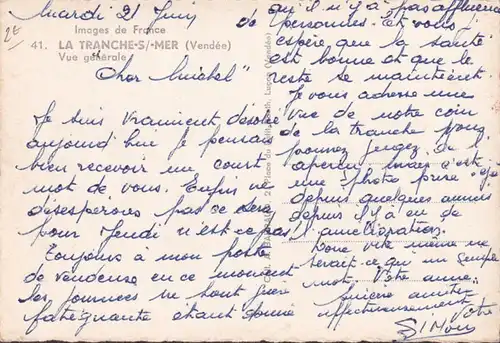 Mardi 21 Juin
Images de France
41. LA TRANCHE-S/-MER (Vendée)
Vue générale
"Cher Michel"
Je suis vraiment désolée
aujourd'hui je pensais
bien recevoir un court
mot de vous. Enfin ne
désespérons pas se sera
pour Jeudi n'est-ce pas
Toujours à mon poste
de vendeuse en ce moment
les journées ne sont guère
fatiguante étant donné
qu'il y à pas affluence
de personnes. Et vous j'
espère que la santé
est bonne et que le
reste se maintient.
Je vous adresse une
vue de notre coin
de la tranche vous
pouvez jugez de l'
aperçu mais c'est
une photo prise
depuis quelques années
depuis il y à eu de
l'amélioration.
Donc vite même ne
serait-ce qu'un simple
mot. Votre amie.
sincère amitié
affectueusement
votre